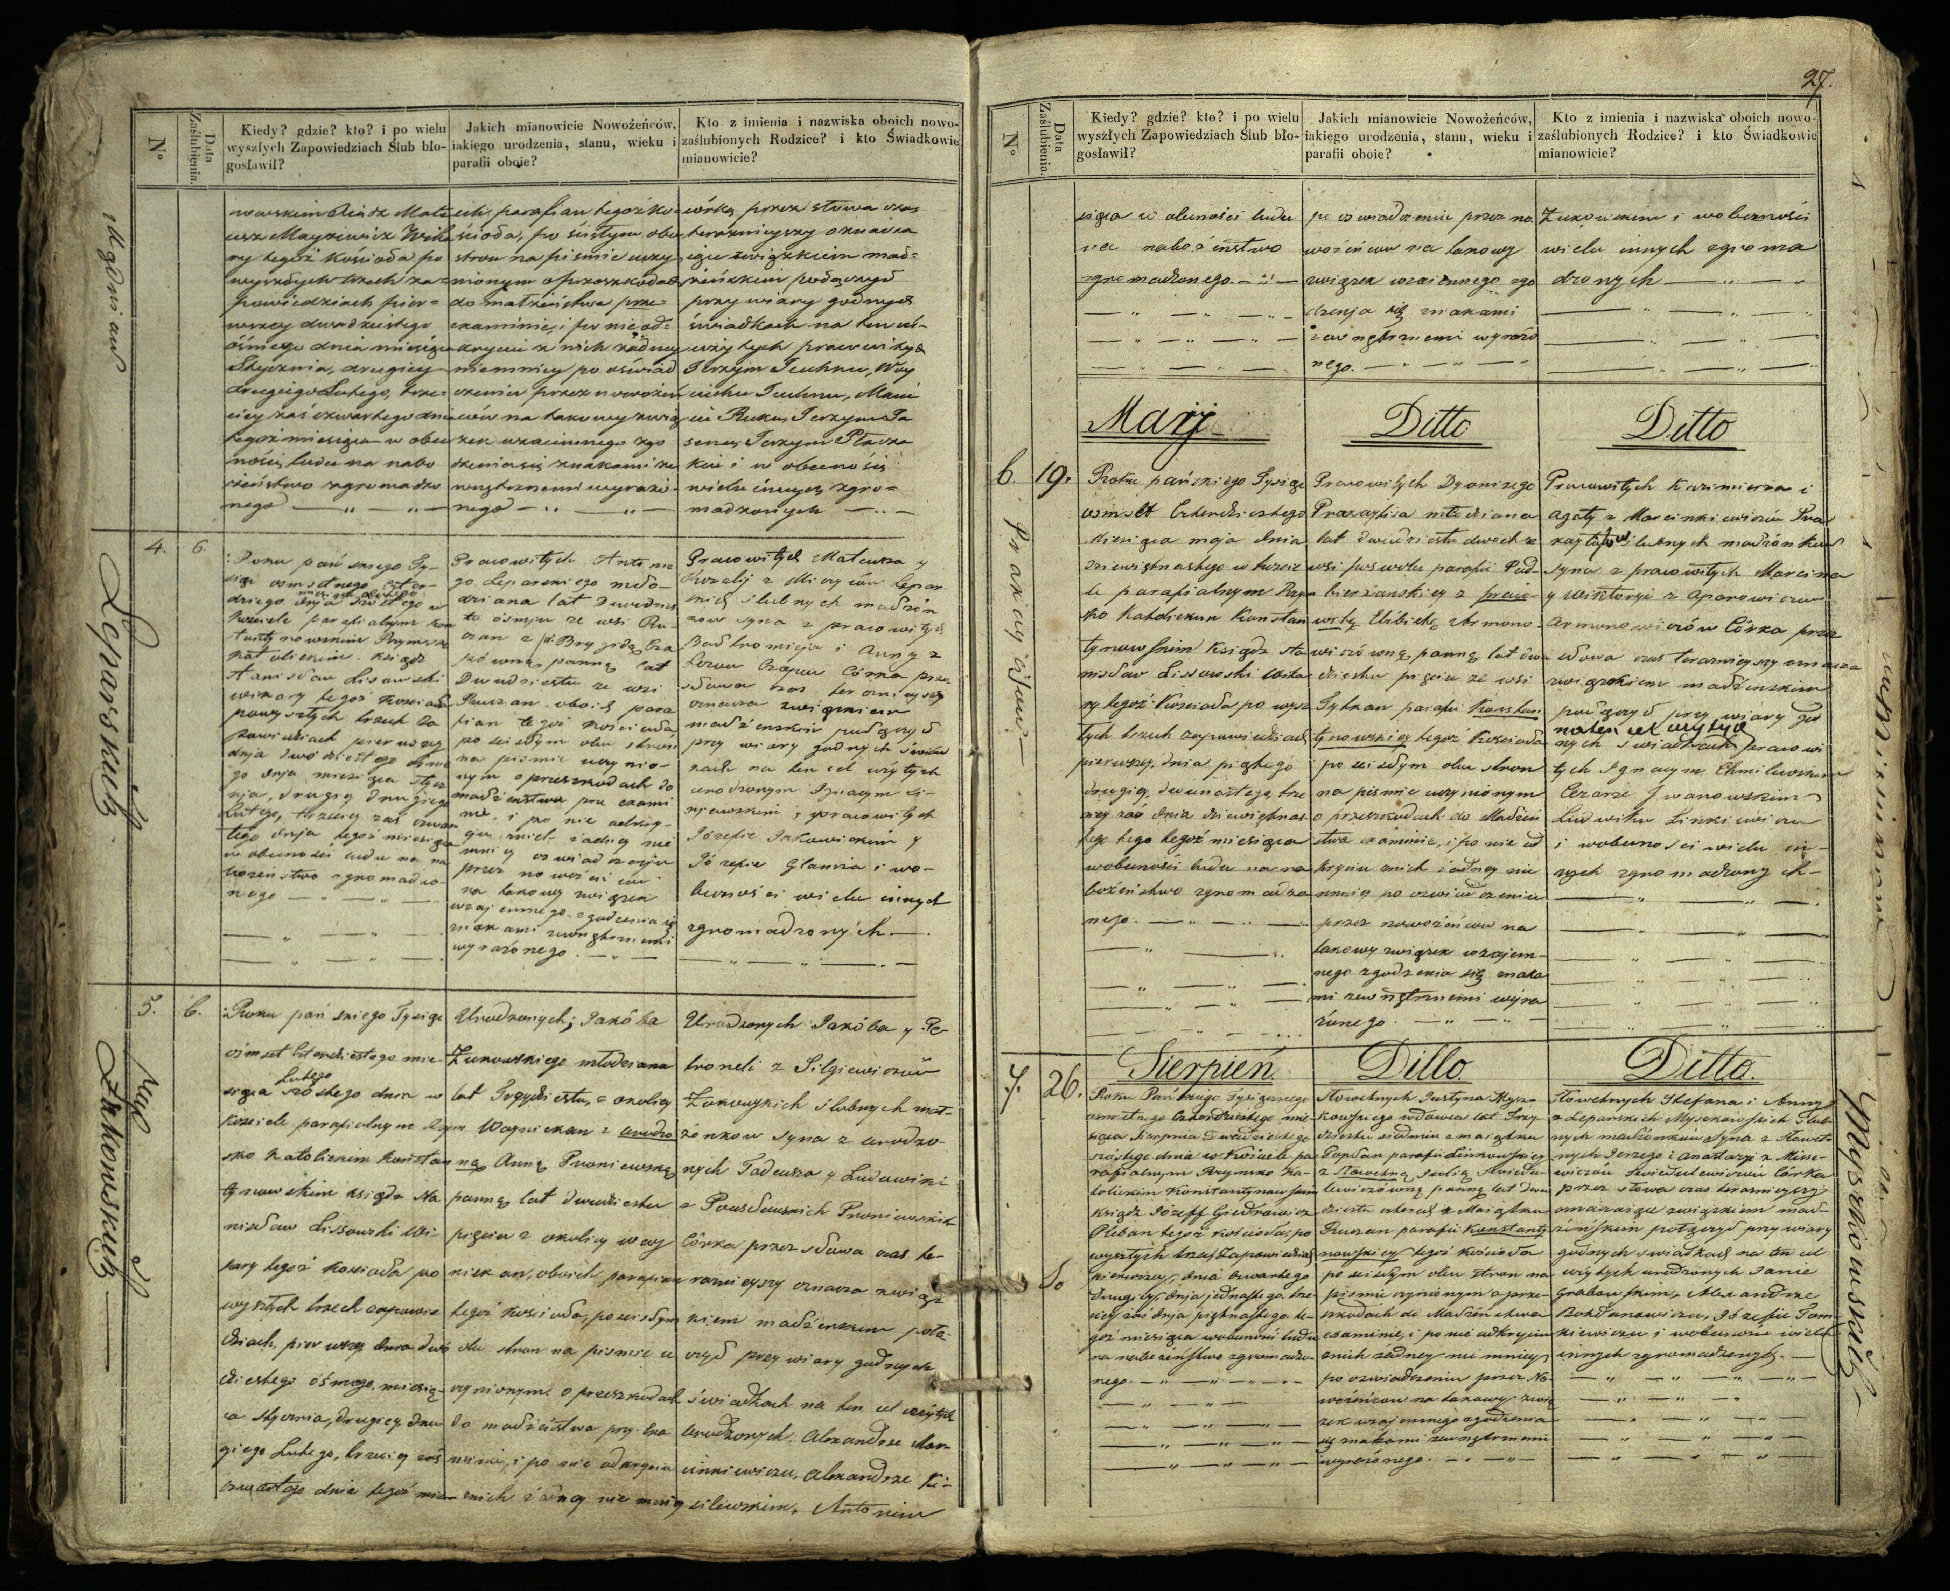 27.
N°
Data Zaślubienia.
Kiedy? gdzie? kto? i po wielu
wyszłych Zapowiedziach Ślub bło-
gosławił?
Jakich mianowicie Nowożeńców,
iakiego urodzenia, stanu, wieku i
parafii oboie?
Kto z imienia i nazwiska oboich nowo-
zaślubionych Rodzice? i kto Świadkowie
mianowicie?
wyszłych trzech za=
powiedziach pier=
wszey dwudziestego
ósmego dnia miesiąca
Stycznia, drugiey
drugiego Lutego, trze=
ciey zaś czwartego dnia
tegoż miesiąca w obec
ności ludu na nabo
żeństwo zgromadzo
nego
ich parafian tegoż ko=
ścioła, po ścisłym obu
stron na piśmie uczy
nionym o przeszkodach
do małżeństwa prze=
examinie, i po nie od=
kryciu z nich żadney
niemniey po oświad
czeniu przez nowożeń
ców na takowy zwią
zek wzaiemnego zgo
dzenia się znakami ze
wnętrznemi wyrażo
nego
córkę przez słowa czas
teraznieyszy oznacza
iące związkiem mał=
żeńskim połączył
przy wiary godnych
świadkach na ten cel
użytych pracowitych
i w obecności
wielu innych zgro=
madzonych
4.
6.
Leparskich
Roku pańskiego Ty-
siąc osmsetnego czter-
dziego miesiąca Lutego
dnia szóstego w
Kościele parafialnym Kon
stantynowskim Rzymsko
Katolickim Ksiądz
Stanisław Lissowski
wikary tegoż Kościoła
po wyszłych trzech Za
powiedziach pierwszey
dnia dwódziestego ósme
go dnia miesiąca stycz
nia, drugiey drugiego
Lutego, trzeciey zaś czwar
tego dnia tegoż miesiąca
w obecności ludu na na
bożeństwo zgromadzo
nego
Pracowitych Antonie
go Leparskiego mło-
dziana lat Dwudzies
tu ośmiu ze wsi Ru-
szan z Brygidą Cza
pówną panną lat
Dwudziestu ze wsi
Ruszan oboich para
fian tegoż kościoła,
po ścisłym obu stron
na piśmie uczynio-
nym o przeszkodach do
małżeństwa prze exami
nie, i po nie odkry-
ciu z nich żadney nie
mniey oswiadczeniu
przez nowożeńców
na takowy związek
wzajemnego zgodzenia się
znakami zewnętrznemi
wyrażonego
Pracowitych Mateusza y
Rozalij z
ślubnych małżon
ków syna z pracowitych
Bartłomieja i Anny z
Czapow Córka prze
słowa czas teraznieyszy
oznacza związkiem
małżenskim połączył
przy wiary godnych świad
kach na ten cel użytych
urodzonym Ignacym
y pracowitych
Józefie Jakowickim y
Józefie Glamzia i wo-
becności wielu innych
zgromadzonych
5.
6.
Żukowskich
Roku pańskiego Tysiąc
ośmset Czterdziestego mie
siąca Lutego szóstego dnia w
kościele parafialnym Rzym
sko Katolickim Konstan
tynowskim ksiądz Sta
nisław Lissowski Wi-
kary tegoż Kościoła po
wyszłych trzech zapowie
dziach, pierwszey dnia dwó
dziestego ósmego miesią-
ca stycznia, drugiey dru
giego Lutego, trzeciey zaś
czwartego dnia tegoż mie-
Urodzonych; Jakóba
Żukowskiego młodziana
lat Trzydziestu, z okolicy
Woyniekan z urodzo
ną Anną Proniewską
panną lat dwudziestu
pięciu z okolicy Woy
niekan, oboich, parafian
tegoż Kościoła, po ścisłym
obu stron na piśmie u
czynionym o przeszkodach
do małżeństwa prze exa
minie, i po nie odkryciu
z nich żadney nie mniey
Urodzonych Jakóba y Pe-
troneli z Silgiewiczów
Żukowskich ślubnych mał-
żonków syna z urodzo-
nych Tadeusza y Ludowiki
z Proniewskich
Córka przez słowa czas te-
raznieyszy oznacza związ
kiem małżenskim połą
czył przy wiary godnych
świadkach na ten cel użytych
urodzonych, Alexandrze Mar-
cinkiewiczu, Alexandrze Ki-
silewskim, Antonim
N°
Data Zaślubienia.
Kiedy? gdzie? kto? i po wielu
wyszłych Zapowiedziach Ślub bło-
gosławił?
Jakich mianowicie Nowożeńców,
iakiego urodzenia, stanu, wieku i
parafii oboie?
Kto z imienia i nazwiska oboich nowo-
zaślubionych Rodzice? i kto Świadkowie
mianowicie?
siąca w obecności ludu
na nabożeństwo
zgromadzonego
po oswiadczeniu przez no
wożeńców na takowy
związek wzaiemnego zgo
dzenia się znakami
zewnętrznemi wyrażo
nego.
Żukowskim i wobecności
wielu innych zgroma
dzonych
Maij
Ditto
Ditto
6.
19.
Roku pańskiego Tysiąc
osmset Czterdziestego
Miesiąca maja dnia
dziewiętnastego w koście
le parafialnym Rzym
sko Katolickim Konstan
tynowskim Ksiądz Sta
nisław Lissowski Wika
ry tegoż Kościoła po wysz
łych trzech zapowiedziach
pierwszey, dnia piątego
drugiey dwunastego, trze
ciey zaś dnia dziewiętnas
tego tegoż miesiąca
wobecności ludu na na
bożeństwo zgromadzo
nego
Pracowitych Dyonizego
Prakapisa młodziana
lat dwudziestu dwóch z
wsi parafii Pod-
bierzańskiey z praco-
witą Elżbietą Armono-
wiczówną, panną lat dwu
dziestu pięciu ze wsi
Gytkan parafii Konstan
tynowskiey tegoż Kościoła
po ścisłym obu stron
na piśmie uczynionym
o przeszkodach do Małżeń
stwa examinie, i po nie od
kryciu z nich żadney nie
mniey po oswiadczeniu
przez nowożeńców na
takowy związek wzajem-
nego zgodzenia się znaka
mi zewnętrznemi wyra
żonego
Pracowitych Kazimierza i
Agaty z Marcinkiewiczów Pra
kapisów ślubnych małżonków
syna z pracowitych Marcina
y Wiktoryi z
Armonowiczów Córka prze
słowa czas teraznieyszy oznacza
związkiem małżenskim
połączył przy wiary god
nych świadkach na ten cel użytych pracowi
tych Ignacym Chmielewskim
Cezarze Iwanowskim
Ludwiku Linkiewiczu
i wobecności wielu in-
nych zgromadzonych
7.
26.
Sierpień
Ditto.
Ditto.
Myszkowskich
Roku Pańskiego Tysiącznego
osmsetnego Czterdziestego mie
siąca Sierpnia Dwudziestego
szóstego dnia w Kościele pa
rafialnym Rzymsko Ka-
tolickim Konstantynowskim
ksiądz Józeff Giedrowicz
Pleban tegoż kościoła, po
wyszłych trzech Zapowiedziach
pierwszey, dnia czwartego
drugiey, dnia jednastego, trze
ciey zaś dnia piętnastego te-
goż miesiąca wobecności ludu
na nabożeństwo zgromadzo
nego
Sławetnych Justyna Mysz-
kowskiego wdowca lat Trzy
dziestu siedmiu z maiątku
Popołan parafii Linkowskiey
z Sławetną Julią
panną lat dwu
dziestu z Maiątku
Ruszan parafii Konstanty
nowskiey tegoż kościoła
po ścisłym obu stron na
piśmie uczynionym o prze-
szkodach do Małżeństwa
examinie, i po nie odkryciu
z nich żadney nie mniey
po oswiadczeniu przez No-
wożeńców na takowy zwią
zek wzajemnego zgodzenia
się znakami zewnętrznemi
wyrażonego
Sławetnych Stefana i Anny
z Leparskich Myszkowskich Ślub-
nych małżonków Syna z Sławet-
nych Jerzego i Anastazyi z
Córka
przez słowa czas teraznieyszy
oznaczające związkiem mał-
żeńskim połączył przy wiary
godnych swiadkach na ten cel
użytych urodzonych Janie
Grabowskim, Alexandrze
Bohdanowiczu, Józefie Tom
kiewiczu i wobecności wielu
innych zgromadzonych.